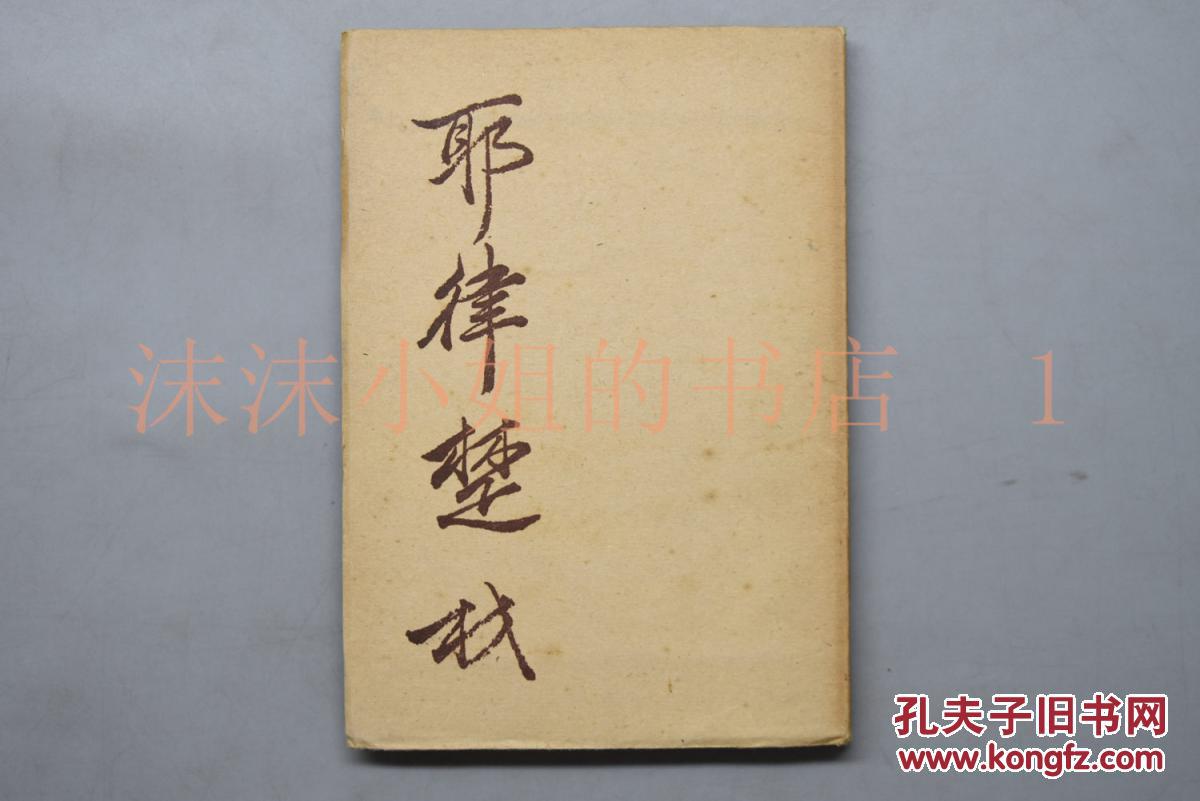 耶律楚材
沫沫小姐的书店 1
孔夫子旧书网
www.kongfz.com